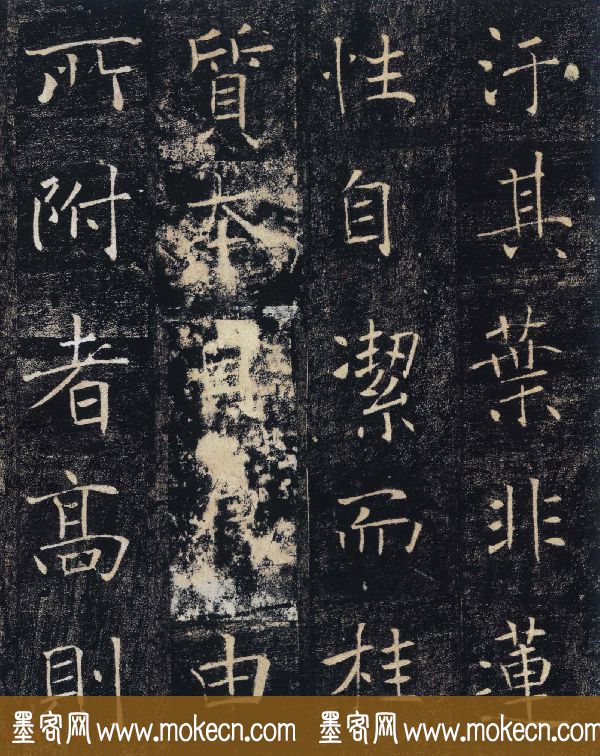 汙其葉非蓮
性自潔而桂
質本由
所附者髙則
墨客网 www.mokecn.com 墨客网 www.mokecn.com